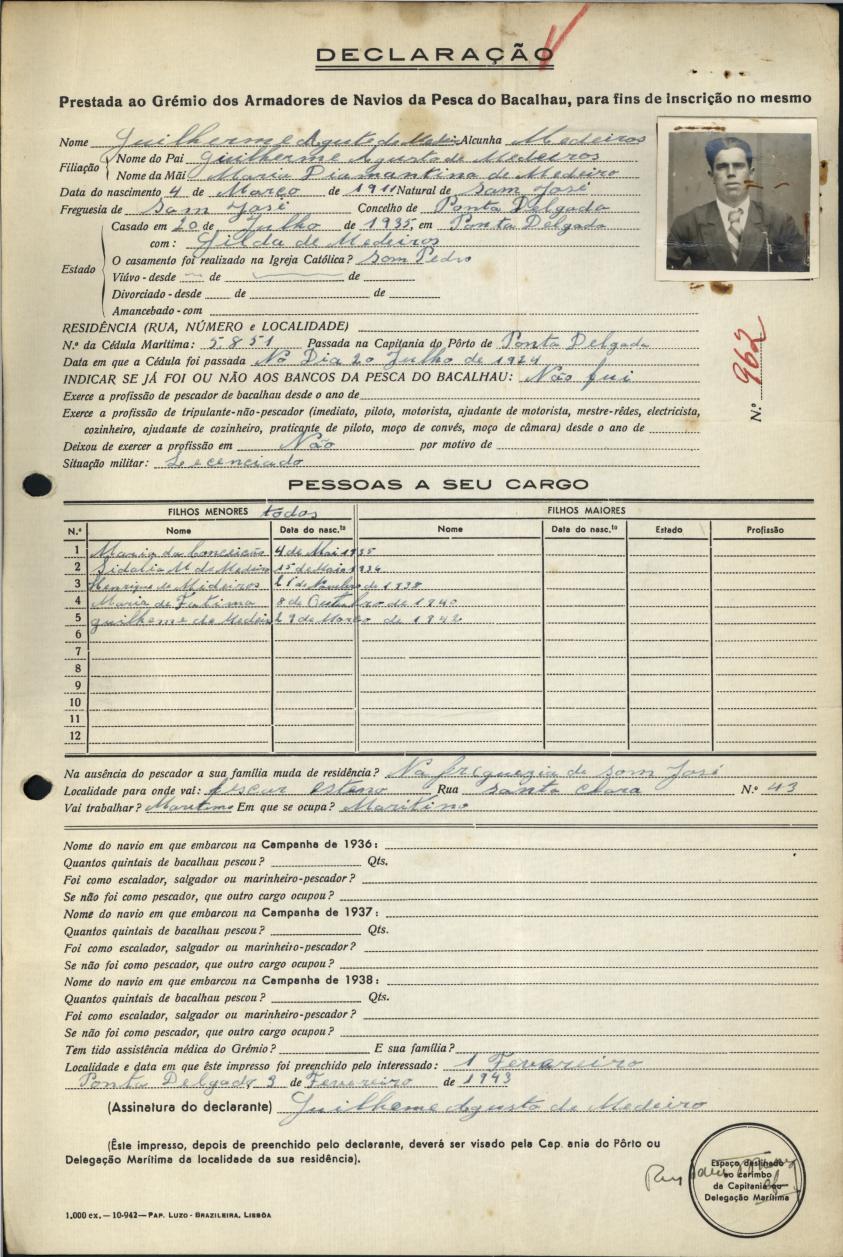 DECLARAÇÃO
Prestada ao Grémio dos Armadores de Navios da Pesca do Bacalhau, para fins de inscrição no mesmo
Nome Guilherme Agusto de Medei Alcunha Medeiros
Filiação
Nome do Pai guilherme Agusto de Medeiros
Nome da Mãi Maria Diamantina de Medeiro
Data do nascimento 4 de Março de 1911 Natural de Sam José
Freguesia de Sam José Concelho de Ponta Delgada
Estado
Casado em 20 de Julho de 1935, em Ponta Delgada
com: Gilda de Medeiros
O casamento foi realizado na Igreja Católica? Som Pedro
Viúvo - desde de de
Divorciado - desde de de
Amancebado - com
RESIDÊNCIA (RUA, NÚMERO e LOCALIDADE)
N.º da Cédula Marítima: 5.851 Passada na Capitania do Pôrto de Ponta Delgada
Data em que a Cédula foi passada No Dia 20 Julho de 1924
INDICAR SE JÁ FOI OU NÃO AOS BANCOS DA PESCA DO BACALHAU: Não fui
N.º 962
Exerce a profissão de pescador de bacalhau desde o ano de
Exerce a profissão de tripulante-não-pescador (imediato, piloto, motorista, ajudante de motorista, mestre-rêdes, electricista,
cozinheiro, ajudante de cozinheiro, praticante de piloto, moço de convés, moço de câmara) desde o ano de
Deixou de exercer a profissão em Não por motivo de
Situação militar: Lecenciado
PESSOAS A SEU CARGO
FILHOS MENORES todos FILHOS MAIORES
N.º Nome Data do nasc.to Nome Data do nasc.to Estado Profissão
1 Maria da Conceicão 4 de Mai 1935
2 Sidalia M. de Medeiro 15 de Maio 1936
3 Henrique de Mideiros 21 de Novembro de 1938
4 Maria de Fatima 8 de Outubro de 1940
5 guilheme de Medeir 29 de Março de 1942
6
7
8
9
10
11
12
Na ausência do pescador a sua família muda de residência? Na freguezia de Som José
Localidade para onde vai: pescar Rua Santa Clara N.º 43
Vai trabalhar? Maritimo Em que se ocupa? Maritimo
Nome do navio em que embarcou na Campanha de 1936:
Quantos quintais de bacalhau pescou? Qts.
Foi como escalador, salgador ou marinheiro-pescador?
Se não foi como pescador, que outro cargo ocupou?
Nome do navio em que embarcou na Campanha de 1937:
Quantos quintais de bacalhau pescou? Qts.
Foi como escalador, salgador ou marinheiro-pescador?
Se não foi como pescador, que outro cargo ocupou?
Nome do navio em que embarcou na Campanha de 1938:
Quantos quintais de bacalhau pescou? Qts.
Foi como escalador, salgador ou marinheiro-pescador?
Se não foi como pescador, que outro cargo ocupou?
Tem tido assistência médica do Grémio? E sua família?
Localidade e data em que êste impresso foi preenchido pelo interessado: 1 Fevereiro
Ponta Delgada 3 de Fevereiro de 1943
(Assinatura do declarante) Guilheme Agusto de Medeiro
(Êste impresso, depois de preenchido pelo declarante, deverá ser visado pela Cap. ania do Pôrto ou
Delegação Marítima da localidade da sua residência).
Espaço destinado
ao carimbo
da Capitania ou
Delegação Marítima
1.000 ex. — 10-942 — PAP. LUZO - BRAZILEIRA, LISBÔA